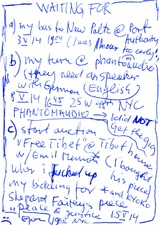 WAITING FOR
a) my bus to New Paltz @ Port
Authority
3 V 14 (I was 1 hour too early!)
b) my turn @ phantomaudio
(they need an speaker
with German (English)
8 V 14 25 W NYC
PHANTOMAUDIO → did NOT
get the gig
c) start auction
"Free Tibet" @ Tibet house
w/ (I bought
who his piece)
fucked up
my bidding for
Shepard Faireys piece
"peace & justice 15 V 14
NYC